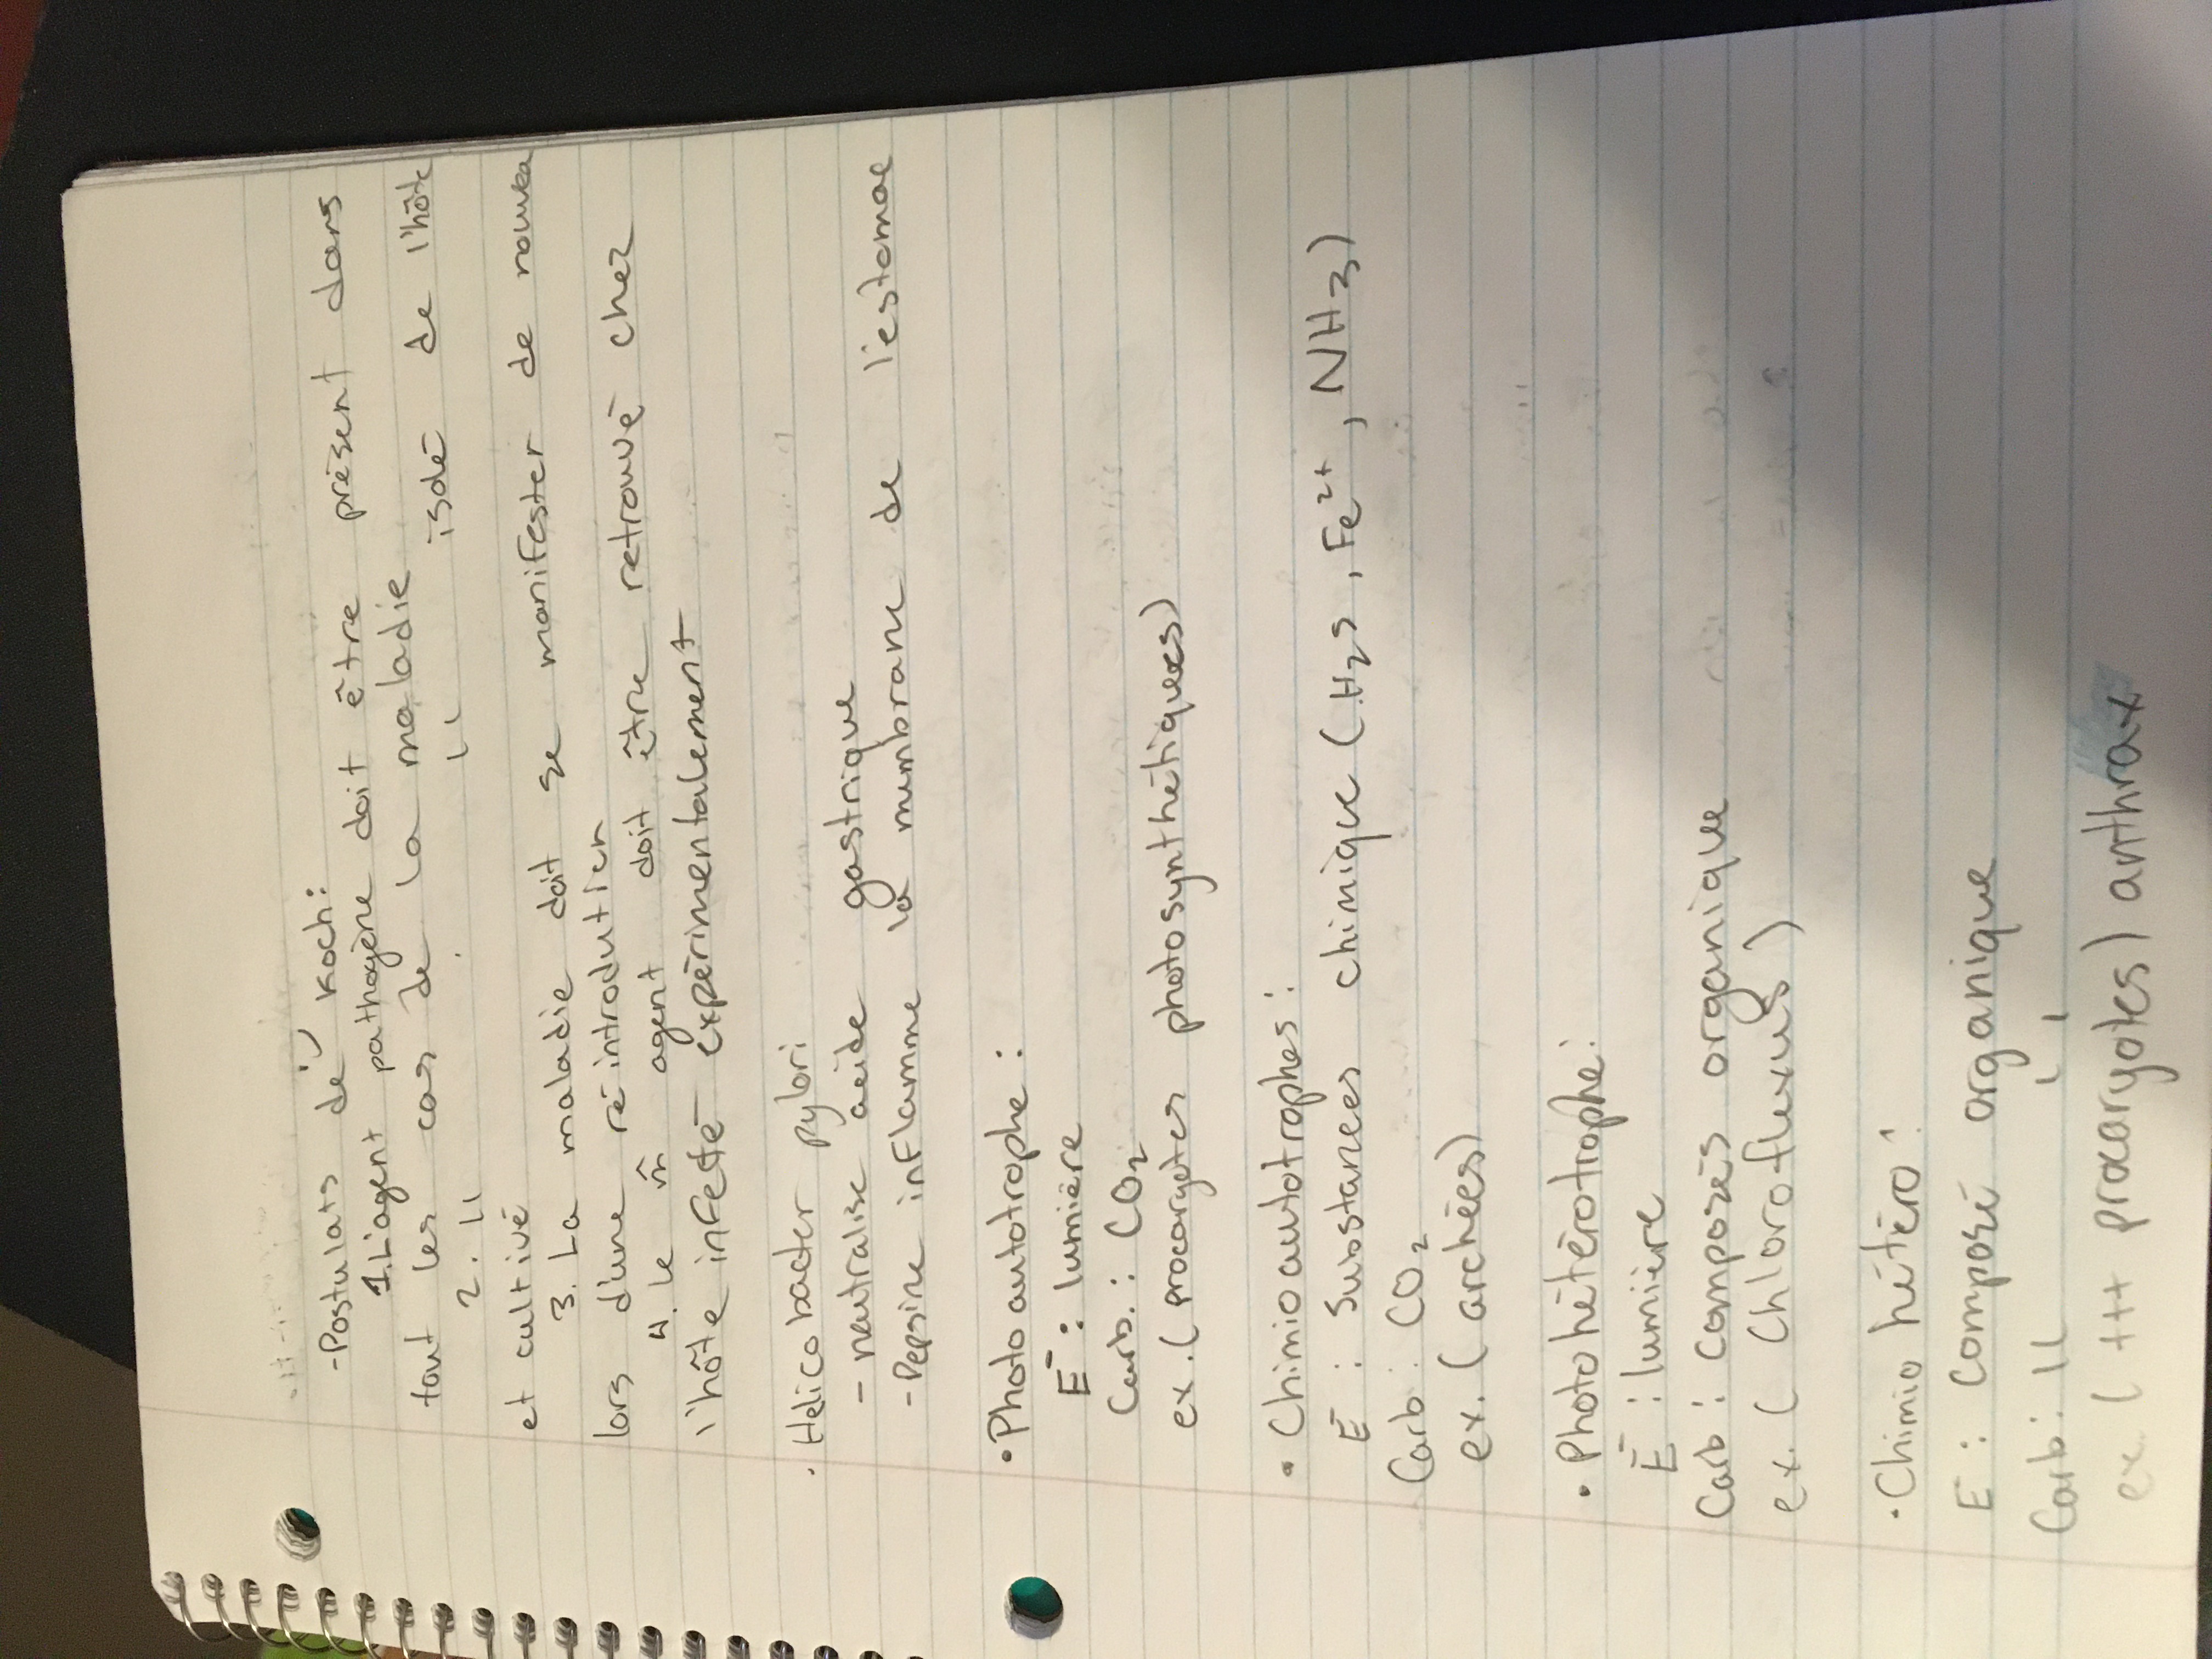 -Postulats de Koch:
1. L'agent pathogène doit être présent dans
tout les cas de la maladie
2. " " isolé de l'hôte
et cultivé
3. La maladie doit se manifester de nouvea
lors d'une réintrodution
4. Le m̂ agent doit être retrouvé chez
l'hôte infecté expérimentalement
. Helicobacter pylori
- neutralise acide gastrique
- Pepsine inflamme la membrane de l'estomac
• Photoautotrophe :
E : lumière
Carb. : CO₂
ex. (procaryotes photosynthétiques)
• Chimioautotrophes :
E : Substances chimique (H₂S, Fe²⁺, NH₃)
Carb : CO₂
ex. (archées)
• Photohétérotrophe:
E : lumière
Carb : composés organique
ex. ( Chloroflexus )
• Chimio hétéro :
E : Composé organique
Carb : " "
ex. ( +++ procaryotes) anthrax